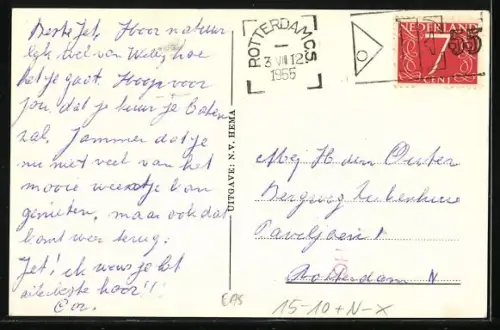 Beste Jet, Hoor natuur
lijk wel van Wally hoe
het je gaat. Hoop voor
jou dat je kuur je baten
zal. Jammer dat je
nu niet veel van het
mooie weertje kan
genieten, maar ook dat
komt weer terug.
Jet! ik wens je het
allerbeste hoor!!
Cor.
UITGAVE: N.V. HEMA
ROTTERDAM CS
3 VII 12
1955
NEDERLAND
7
CENT
55
Mej H. den Ouden
Bergweg Ziekenhuis
Paviljoen 1
Rotterdam N
EAS
15-10+N-X